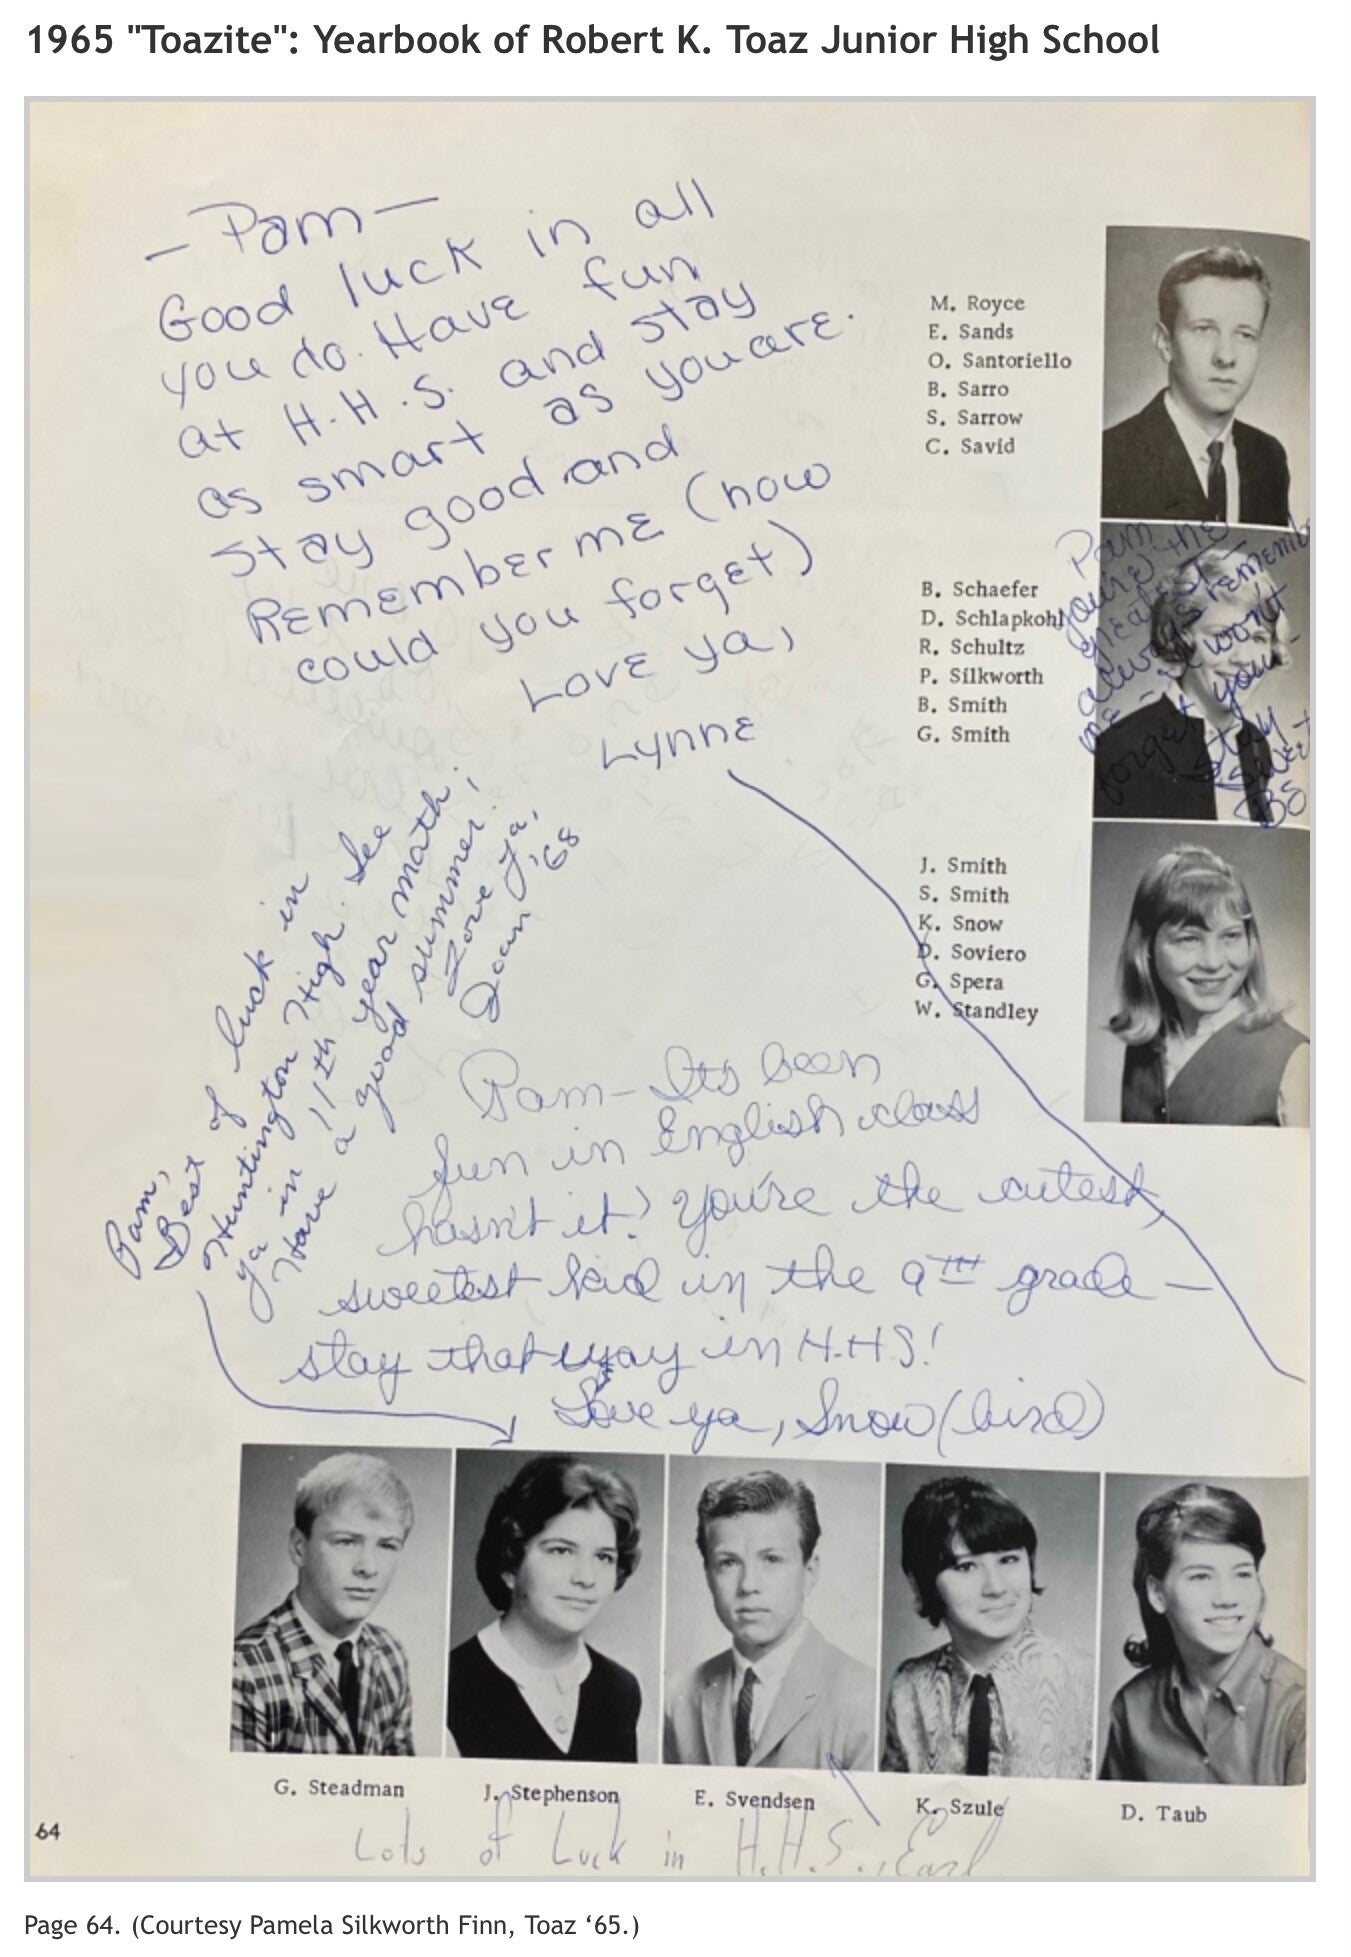 1965 "Toazite": Yearbook of Robert K. Toaz Junior High School
— Pam —
Good luck in all
you do. Have fun
at H.H.S. and stay
as smart as you are.
Stay good and
Remember me (how
could you forget)
Love ya,
Lynne
M. Royce
E. Sands
O. Santoriello
B. Sarro
S. Sarrow
C. Savid
B. Schaefer
D. Schlapkohl
R. Schultz
P. Silkworth
B. Smith
G. Smith
Pam
you're the
greatest
always remember
me - I won't
forget you -
Stay
Sweet
BS
J. Smith
S. Smith
K. Snow
D. Soviero
G. Spera
W. Standley
Pam,
Best of luck in
Huntington High. See
ya in 11th year math;
Have a good summer!
Love ya,
Joan '68
Pam - Its been
fun in English class
hasn't it? You're the cutest,
sweetest kid in the 9TH grade —
stay that way in H.H.S!
Love ya, Snow (bird)
G. Steadman
J. Stephenson
E. Svendsen
K. Szule
D. Taub
Lots of Luck in H.H.S., Earl
64
Page 64. (Courtesy Pamela Silkworth Finn, Toaz ‘65.)